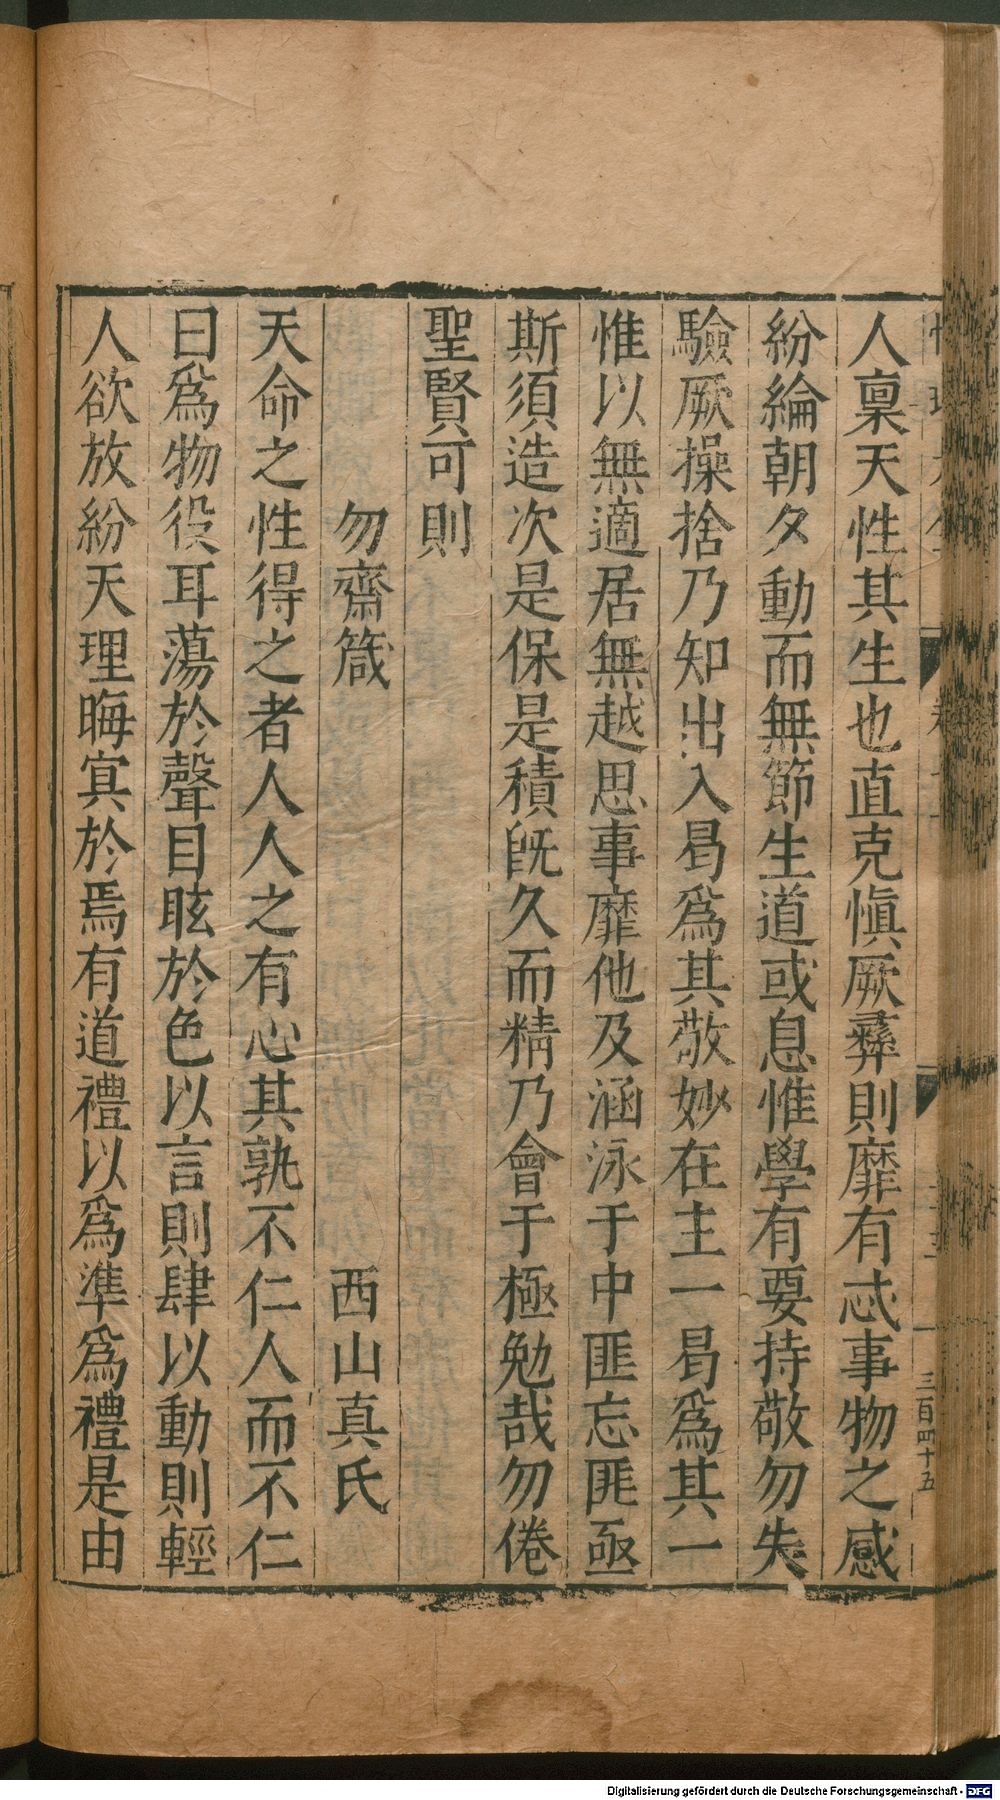 人稟天性其生也直克愼厥彝則靡有忒事物之感
紛綸朝夕動而無節生道或息惟學有要持敬勿失
驗厥操捨乃知出入曷爲其敬妙在主一曷爲其一
惟以無適居無越思事靡他及涵泳于中匪忘匪亟
斯須造次是保是積旣久而精乃會于極勉哉勿倦
聖賢可則
勿齋箴 西山真氏
天命之性得之者人人之有心其孰不仁人而不仁
曰爲物役耳蕩於聲目眩於色以言則肆以動則輕
人欲放紛天理晦寘於焉有道禮以爲準爲禮是由
三百四十五
Digitalisierung gefördert durch die Deutsche Forschungsgemeinschaft - DFG